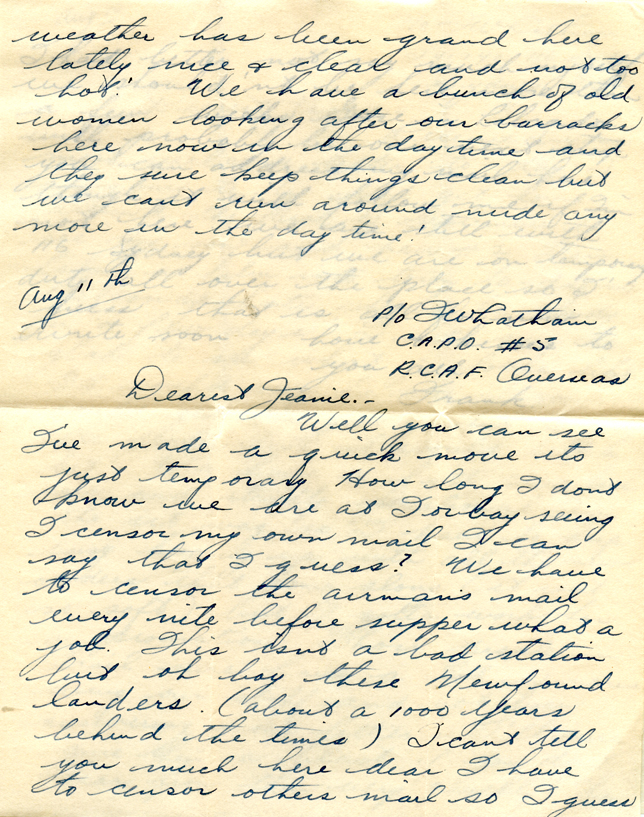 weather has been grand here
lately nice & clear and not too
hot! We have a bunch of old
women looking after our barracks
here now in the day time and
they sure keep things clean but
we can't run around nude any
more in the day time!
Aug 11th
P/O F Whatham
C.A.P.O. #5
R.C.A.F. Overseas
Dearest Jeanie.-
Well you can see
I've made a quick move its
just temporary How long I dont
know we are at Torbay seeing
I censor my own mail I can
say that I guess? We have
to censor the airmans mail
every nite before supper what a
job. This isnt a bad station
but oh boy these Newfound
landers. (about a 1000 years
behind the times) I cant tell
you much here dear I have
to censor others mail so I guess